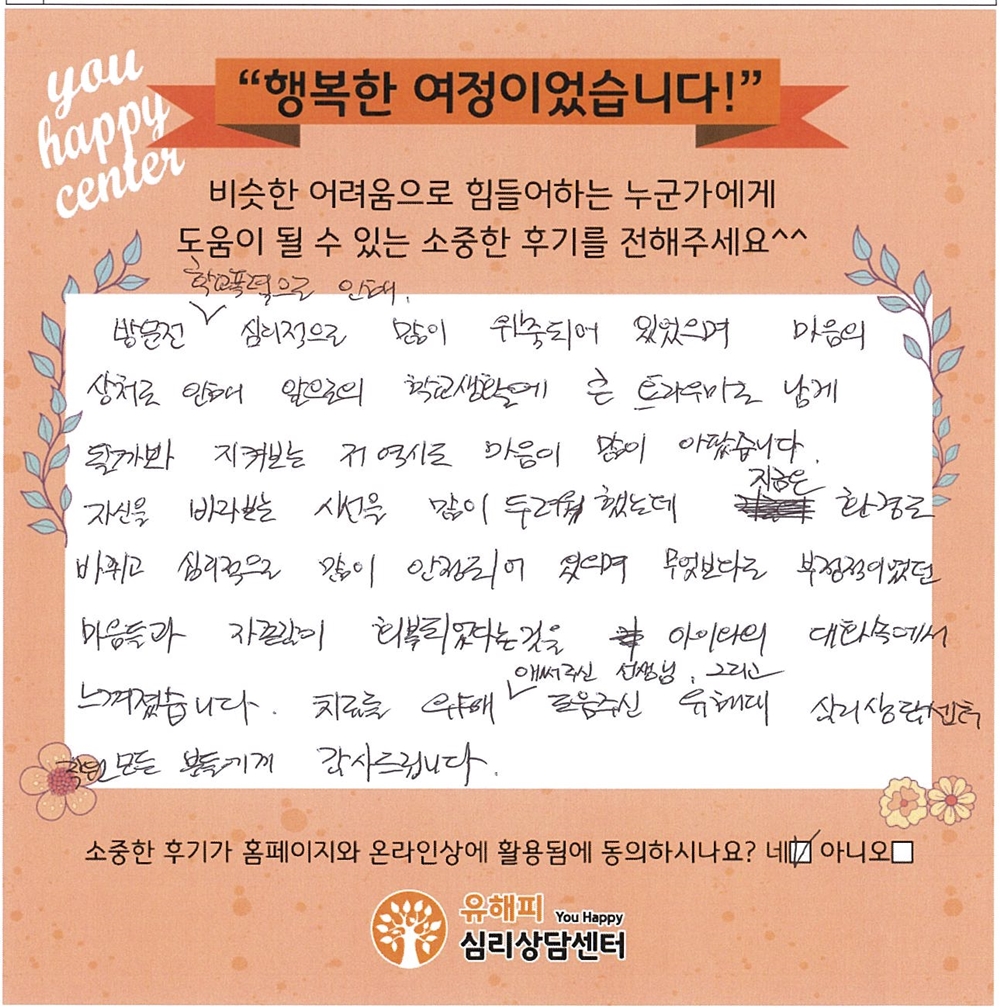 you
happy
center
“행복한 여정이었습니다!”
비슷한 어려움으로 힘들어하는 누군가에게
도움이 될 수 있는 소중한 후기를 전해주세요^^
학교폭력으로 인해,
방문전 심리적으로 많이 위축되어 있었으며 마음의
상처로 인해 앞으로의 학교생활에 큰 트라우마로 남게
될까봐 지켜보는 저 역시도 마음이 많이 아팠습니다.
지금은
자신을 바라보는 시선을 많이 두려워 했는데 환경도
바뀌고 심리적으로 많이 안정되어 있으며 무엇보다도 부정적이었던
마음들과 자존감이 회복되었다는것을 아이와의 대화속에서
애써주신 선생님, 그리고
느껴졌습니다. 치료를 위해 도움주신 유해피 심리상담센터
모든 분들에게 감사드립니다.
소중한 후기가 홈페이지와 온라인상에 활용됨에 동의하시나요? 네 아니오
유해피 You Happy
심리상담센터